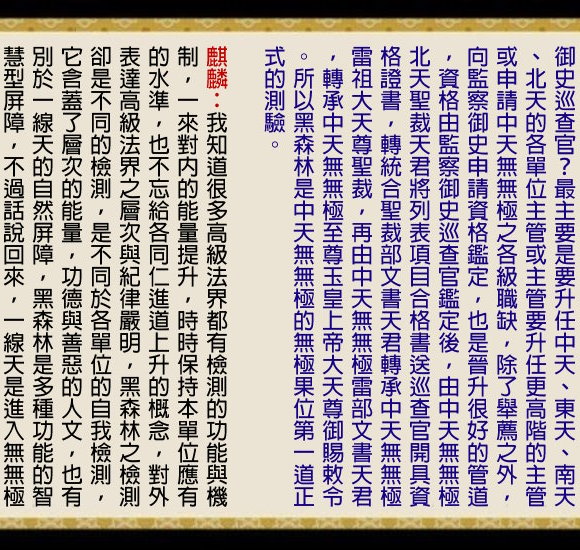 御史巡查官?最主要是要升任中天、東天、南天
、北天的各單位主管或主管要升任更高階的主管
或申請中天無無極之各級職缺，除了舉薦之外，
向監察御史申請資格鑑定，也是晉升很好的管道
，資格由監察御史巡查官鑑定後，由中天無無極
北天聖裁天君將列表項目合格書送巡查官開具資
格證書，轉統合聖裁部文書天君轉承中天無無極
雷祖大天尊聖裁，再由中天無無極雷部文書天君
，轉承中天無無極至尊玉皇上帝大天尊御賜敕令
。所以黑森林是中天無無極的無極果位第一道正
式的測驗。
麒麟：我知道很多高級法界都有檢測的功能與機
制，一來對內的能量提升，時時保持本單位應有
的水準，也不忘給各同仁進道上升的概念，對外
表達高級法界之層次與紀律嚴明，黑森林之檢測
卻是不同的檢測，是不同於各單位的自我檢測，
它含蓋了層次的能量，功德與善惡的人文，也有
別於一線天的自然屏障，黑森林是多種功能的智
慧型屏障，不過話說回來，一線天是進入無無極